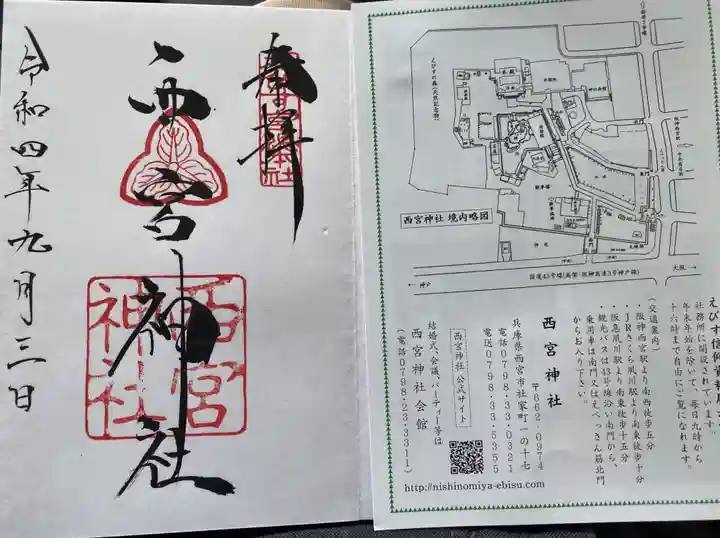 奉拝
西宮神社
令和四年九月三日
西宮神社
西宮神社 境内略図
えびすの森(天然記念物)
本殿
拝殿
神池
駐車場
南門
東門
阪神西宮駅
国道43号線(高架・阪神高速3号神戸線)
←神戸
大阪→
社務所に開設されています。
年末年始を除いて、毎日九時から
十六時まで自由にご覧になれます。
(交通案内)
・阪神西宮駅より南西徒歩五分
・JRさくら夙川駅より南東徒歩十分
・阪急夙川駅より南東徒歩十五分
・観光バスは43号線沿い南門から、
乗用車は南門又はえべっさん筋北門
からお入り下さい。
西宮神社
〒662-0974
兵庫県西宮市社家町一の十七
電話0798・33・0321
電送0798・33・5355
西宮神社公式サイト
結婚式、会議、パーティー等は
西宮神社会館
(電話0798・23・3311)
http://nishinomiya-ebisu.com